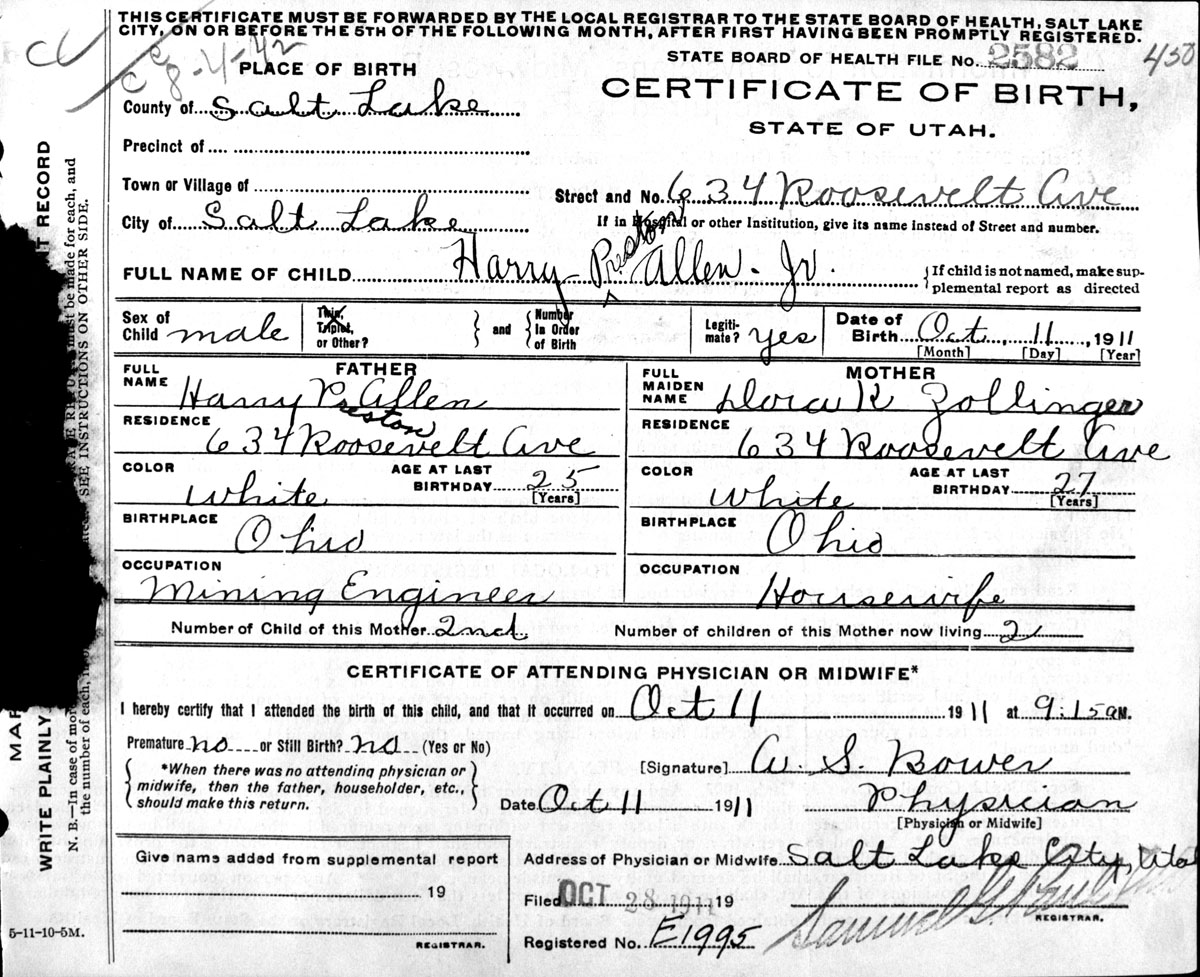 THIS CERTIFICATE MUST BE FORWARDED BY THE LOCAL REGISTRAR TO THE STATE BOARD OF HEALTH, SALT LAKE
CITY, ON OR BEFORE THE 5TH OF THE FOLLOWING MONTH, AFTER FIRST HAVING BEEN PROMPTLY REGISTERED.
8-4-42
STATE BOARD OF HEALTH FILE No. 2582 450
PLACE OF BIRTH
CERTIFICATE OF BIRTH,
County of Salt Lake
STATE OF UTAH.
Precinct of
Town or Village of
Street and No. 634 Roosevelt Ave
City of Salt Lake
If in Hospital or other Institution, give its name instead of Street and number.
FULL NAME OF CHILD Harry Preston Allen Jr.
{If child is not named, make sup-
plemental report as directed
Sex of Child male
Twin, Triplet, or Other? } and { Number In Order of Birth
Legiti-mate? yes
Date of Birth Oct, 11, 1911
[Month] [Day] [Year]
FATHER
MOTHER
FULL NAME Harry Preston Allen
FULL MAIDEN NAME Dora K Zollinger
RESIDENCE 634 Roosevelt Ave
RESIDENCE 634 Roosevelt Ave
COLOR White AGE AT LAST BIRTHDAY 25 [Years]
COLOR White AGE AT LAST BIRTHDAY 27 [Years]
BIRTHPLACE Ohio
BIRTHPLACE Ohio
OCCUPATION Mining Engineer
OCCUPATION Housewife
Number of Child of this Mother 2nd Number of children of this Mother now living 2
CERTIFICATE OF ATTENDING PHYSICIAN OR MIDWIFE*
I hereby certify that I attended the birth of this child, and that it occurred on Oct 11 1911 at 9:15 a M.
Premature no or Still Birth? no (Yes or No)
*When there was no attending physician or
midwife, then the father, householder, etc.,
should make this return.
[Signature] W S. Bower
Date Oct 11 1911 Physician
[Physician or Midwife]
Give name added from supplemental report
Address of Physician or Midwife Salt Lake City, Utah
19
Filed OCT 28 1911 19
REGISTRAR.
5-11-10-5M.
REGISTRAR.
Registered No. E1995
WRITE PLAINLY
N. B.—In case of more
the number of each,
must be made for each, and
SEE INSTRUCTIONS ON OTHER SIDE.
RECORD